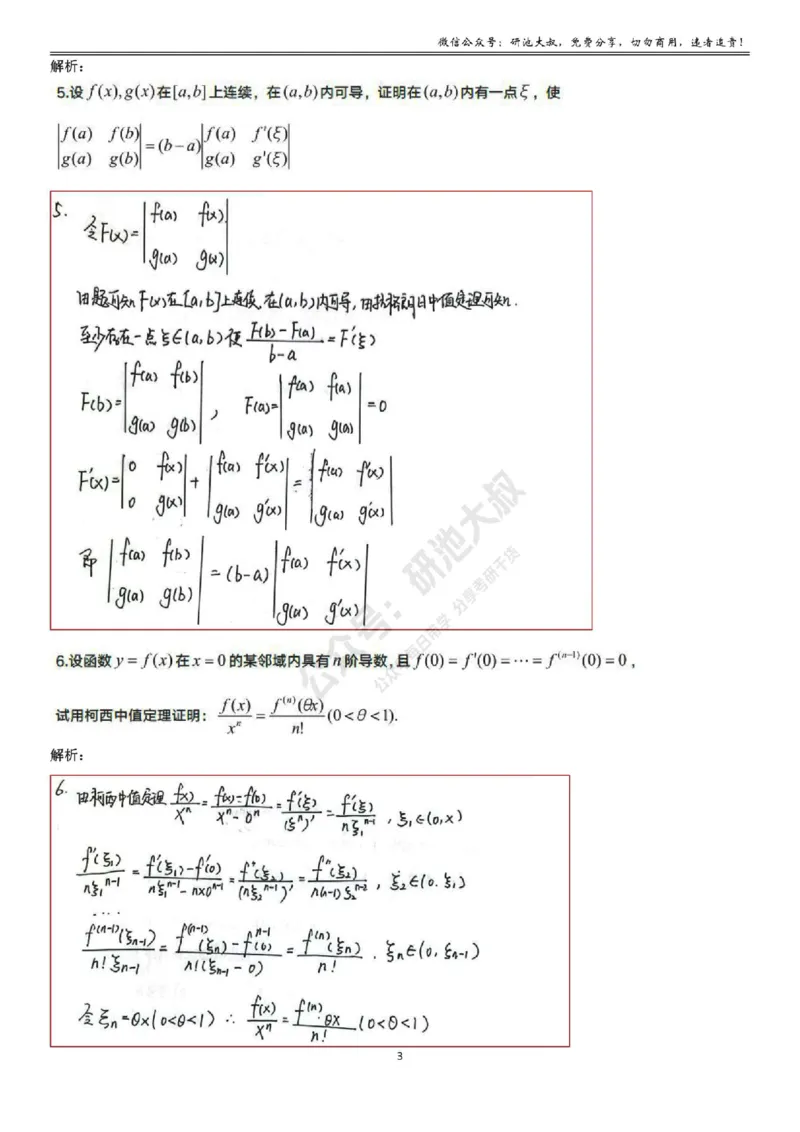 微信公众号：研池大叔，免费分享，切勿商用，违者追责！
解析：
5.设 f(x),g(x)在[a,b]上连续，在(a,b)内可导，证明在(a,b)内有一点ξ，使
|f(a) f(b)| |f(a) f'(ξ)|
|g(a) g(b)| =(b−a) |g(a) g'(ξ)|
5.
令F(x)= |f(a) f(x)|
|g(a) g(x)|
由题可知F(x)在[a,b]上连续,在(a,b)内可导,由拉格朗日中值定理可知.
至少存在一点ξ∈(a,b)使 (F(b)-F(a))/(b-a) =F'(ξ)
F(b)= |f(a) f(b)| , F(a)= |f(a) f(a)| =0
|g(a) g(b)| |g(a) g(a)|
F'(x)= |0 f(x)| + |f(a) f'(x)| = |f(a) f'(x)|
|0 g(x)| |g(a) g'(x)| |g(a) g'(x)|
即 |f(a) f(b)| =(b-a) |f(a) f'(x)|
|g(a) g(b)| |g(a) g'(x)|
公众号：研池大叔
公众号每日带学 分享考研干货
6.设函数 y = f(x)在 x = 0的某邻域内具有n阶导数,且 f(0) = f'(0) = ⋯ = f^(n−1)(0) = 0，
试用柯西中值定理证明： f(x)/x^n = f^(n)(θx)/n! (0<θ<1).
解析：
6. 由柯西中值定理 f(x)/x^n = (f(x)-f(0))/(x^n-0^n) = f'(ξ)/(ξ^n)' = f'(ξ)/(nξ₁^(n-1)) , ξ₁∈(0,x)
f'(ξ₁)/(nξ₁^(n-1)) = (f'(ξ₁)-f'(0))/(nξ₁^(n-1)-n×0^(n-1)) = f''(ξ₂)/(nξ₂^(n-1))' = f''(ξ₂)/(n(n-1)ξ₂^(n-2)) , ξ₂∈(0.ξ₁)
....
f^(n-1)(ξn-1)/(n!ξn-1) = (f^(n-1)(ξn)-f^(n-1)(0))/(n!(ξn-1-0)) = f^(n)(ξn)/n! . ξn∈(0,ξn-1)
令ξn=θx(0<θ<1) ∴ f(x)/x^n = f^(n)θx/n! (0<θ<1)
3